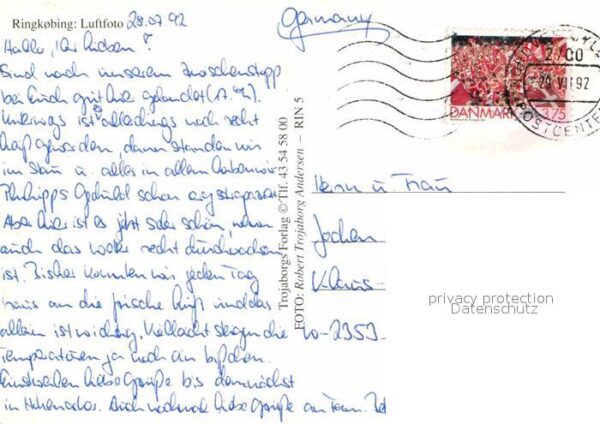 Ringkøbing: Luftfoto 28.07.92
Hallo, Ihr Lieben!
Sind nach unserem Zwischenstopp
bei Euch gut hier gelandet (17. Uhr).
Unterwegs ist es allerdings noch recht
heiß geworden, dann standen wir
im Stau u. alles in allem haben wir
Philipps Geduld schon arg strapaziert.
Aber hier ist es jetzt sehr schön, wenn
auch das Wetter recht durchwachsen
ist. Bisher konnten wir jeden Tag
raus an die frische Luft und das
allein ist wichtig. Vielleicht steigen die
Temperaturen ja noch ein bißchen.
Einstweilen liebe Grüße bis demnächst
in Hohenaspe. Auch nochmal liebe Grüße an Fam.
Trojaborgs Forlag © Tlf. 43 54 58 00
FOTO: Robert Trojaborg Andersen – RIN 5
Germany
DANMARK
375
2700
29 VII 92
POSTCENTER
Herrn u. Frau
Jochen
Klaus-
W-2353
privacy protection
Datenschutz